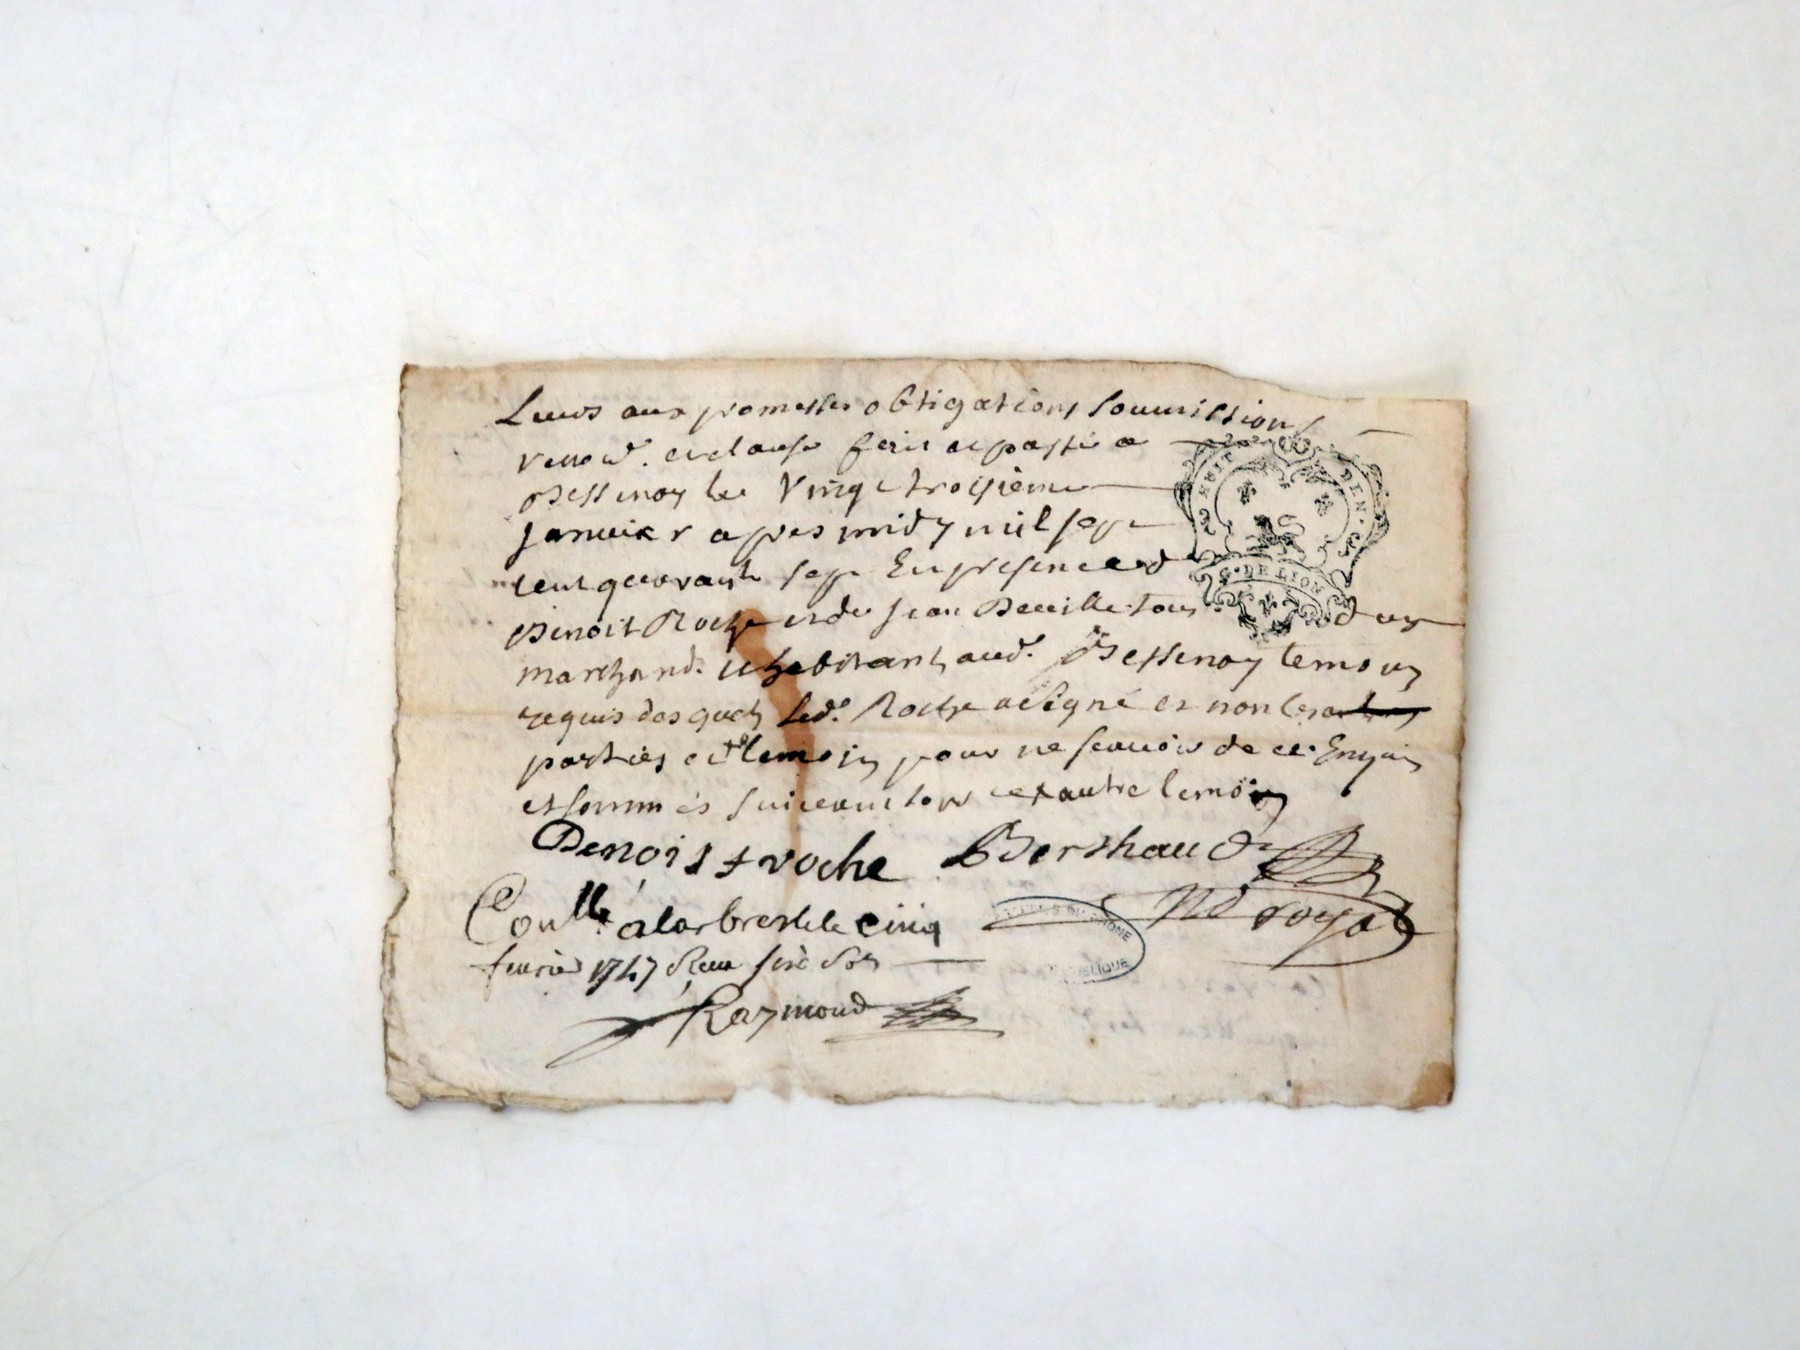 Leurs aux promesses obligations soumissions
renond. et clause fait et passé a
Bessenay le vingt troisieme
janvier apres midy mil sept
cent quarante sept En presence de
Benoit Roche et de Jean Deville tous deux
marchands et habitants aud. Bessenay temoins
requis desquels led. Roche a signé et non les
parties et temoin pour ne scavoir de ce Enquis
et sommés suivant
Benoist roche Berthaud
Nd royal
HUIT DEN.
G. DE LION
Conllé a larbresle le cinq
fevrier 1747 Reçu
Raymond
RHONE